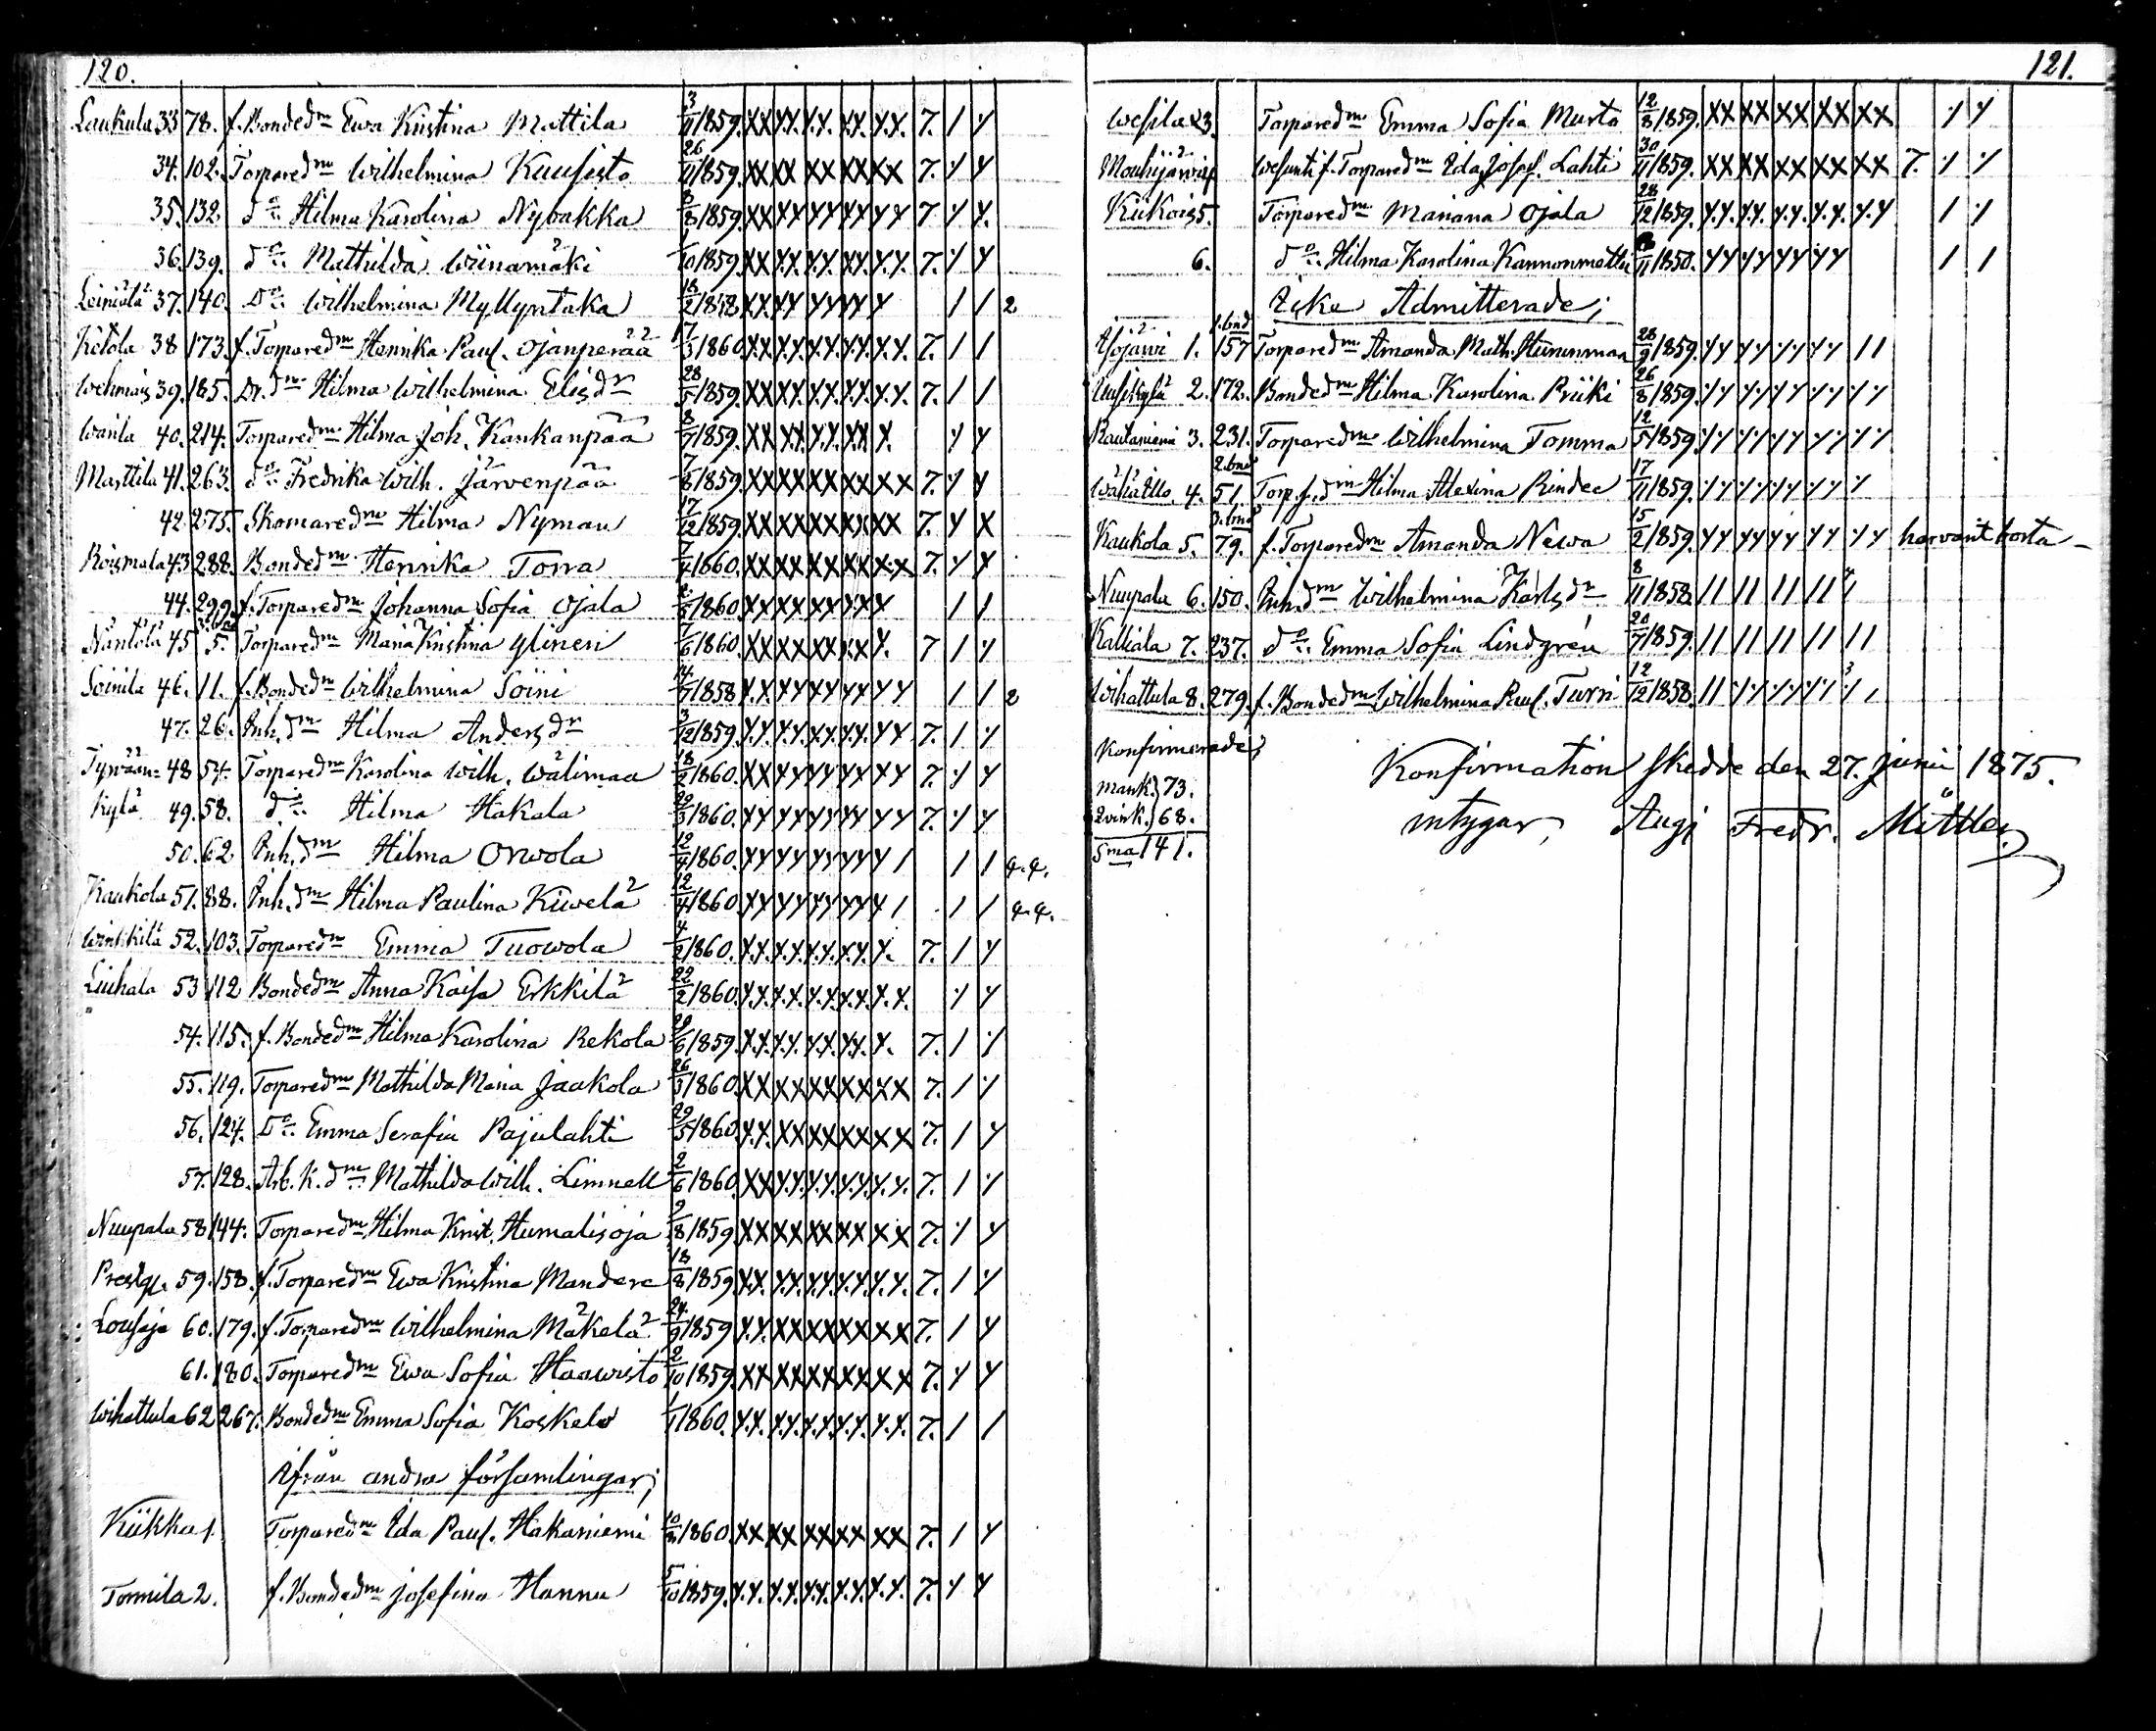 120.
Laukula 33 78. f. Bonded:m Ewa Kristina Mattila 3/11 1859. XX XX. X.X. XX. X.X. 7. / X
34. 102. Torpared:m Wilhelmina Kuusisto 26/11 1859. XX XX XX XX XX 7. X X
35. 132 d:o Hilma Karolina Nybakka 8/8 1859. XX XX XX XX XX 7 X X.
36. 139. d:o Mathilda Wiinamäki /10 1859 XX XX. XX. XX. X.X. 7. X X
Leiniälä 37. 140. D:o Wilhelmina Myllyntaka 18/2 1858 XX XX XX XX X / / 2
Ketola 38 173. f. Torpared:m Henrika Paul. Ojanperää 17/3 1860 XX. XX. XX. XX. XX. 7. / /
Wehmais 39. 185. Dr. d:m Hilma Wilhelmina Elisd:r 28/5 1859. XX XX. XX. XX. XX. 7. / /
Warila 40. 214. Torpared:m Hilma Joh. Kankanpää 8/7 1859. XX XX. XX. XX X. X X
Marttila 41. 263. d:o Fredrika Wilh. Järvenpää 7/8 1859. XX XX XX XX XX 7. X X
42. 275. Skomared:m Hilma Nyman 17/12 1859. XX XX XX XX XX 7. X X
Roismala 43 288. Bonded:m Henrika Torra 7/4 1860. XX XX XX XX XX 7. X X
44. 299. f. Torpared:m Johanna Sofia Ojala 2/5 1860 XX XX XX XX X / /
Näntölä 45 5. Torpared:m Maria Kristina Ylinen 7/6 1860 XX XX XX XX X. 7 / X
Soinila 46. 11. f. Bonded:m Wilhelmina Soini 14/7 1858 X.X XX XX XX XX / / 2
47. 26. Inh. d:m Hilma Andersd:r 3/12 1859 X.X. X.X. XX. XX. XX 7. / X
Tyrvään= 48 54. Torpared:m Karolina Wilh. Wälimaa 18/2 1860. XX XX XX XX XX 7. X X
Kylä 49. 58. d:o Hilma Hakala 22/3 1860. XX XX XX XX XX 7. X X
50. 62 Inh. d:m Hilma Orwola 12/4 1860. XX XX XX XX X / / / 4.4.
Kaukola 51. 88. Inh. d:m Hilma Paulina Kiwelä 12/4 1860 XX XX XX XX X / / / 4.4.
Winkkilä 52. 103. Torpared:m Emma Tuowola 4/2 1860. X.X. X.X. X.X. XX. X. 7. / X
Liuhala 53 112 Bonded:m Anna Kaisa Erkkilä 22/2 1860. X.X. X.X. X.X. XX. X.X. X X
54. 115. f. Bonded:m Hilma Karolina Rekola 29/6 1859. X.X. X.X. XX. XX. X. 7. / X
55. 119. Torpared:m Mathilda Maria Jaakola 26/3 1860 XX XX XX XX XX 7. / X
56. 124. D:o Emma Serafia Pajulahti 29/5 1860. X.X. XX XX XX XX 7. / X
57. 128. Arb. k. d:m Mathilda Wilh. Limnell 2/6 1860. XX X.X. X.X. X.X. X.X. 7. / X
Nuupala 58 144. Torpared:m Hilma Krist. Humalisoja 9/8 1859. XX XX XX XX XX 7. X X
Prestg. 59. 158. f. Torpared:m Ewa Kristina Mandere 18/8 1859. XX. X.X. X.X. X.X. X.X. 7. / X
Lousaja 60. 179. f. Torpared:m Wilhelmina Mäkelä 24/9 1859 X.X. XX XX XX XX 7. / X
61. 180. Torpared:m Ewa Sofia Haawisto 2/10 1859. XX XX XX XX XX 7. X X
Wihattula 62 267. Bonded:m Emma Sofia Koskela 1/1 1860. X.X. X.X. X.X. X.X. X.X. 7. / /
Ifrån andra församlingar;
Kiikka 1. Torpared:m Ida Paul. Hakaniemi 10/2 1860. XX XX XX XX XX 7. / X
Tomila 2. f. Bonded:m Josefina Hannu 5/10 1859. X.X. X.X. X.X. X.X. X.X. 7. X X
121.
Wesila 3. Torpared:m Emma Sofia Murto 12/8 1859. XX XX XX XX XX X X
Mouhijärwi 4 Wesunti f. Torpared:m Ida Josef. Lahti 30/11 1859. XX XX XX XX XX 7. X X
Kiikois 5. Torpared:m Mariana Ojala 28/12 1859. X.X. X.X. X.X. X.X. X.X / X
6. d:o Hilma Karolina Kannonmettu /11 1850. XX XX XX XX / /
Icke Admitterade;
1. bnd
Yojärwi 1. 157 Torpared:m Amanda Math. Hummaa 28/9 1859. XX XX XX XX //
Uusikylä 2. 172. Bonded:m Hilma Karolina Priiki 26/8 1859. XX XX XX XX XX
Rautaniemi 3. 231. Torpared:m Wilhelmina Tomma 12/5 1859. XX XX XX XX XX
2. bnd
Wäliätllo. 4. 51. Torp. f. d:m Hilma Alexina Rindee 17/11 1859. XX XX XX XX X
3. bnd
Kaukola 5. 79. f. Torpared:m Amanda Newa 15/2 1859. XX XX XX XX XX har varit borta –
Nuupala 6. 150. Inh. d:m Wilhelmina Karlsd:r 8/11 1858. // // // // /
Kalliala 7. 237. d:o Emma Sofia Lindgrén 20/7 1859. // // // // //
Wihattula 8. 279. f. Bonded:m Wilhelmina Paul. Turri 12/12 1858. // XX XX XX X /
Konfirmerades
mank. 73.
Qvink. 68.
S:ma 141.
Konfirmation skedde den 27. Junii 1875.
intygar, Aug. Fredr. Mittler